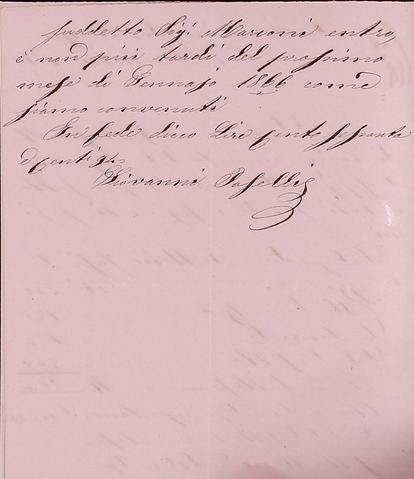 suddetto Sigʳ Marconi entro,
e non più tardi del prossimo
mese di Gennajo 1866 come
siamo convenuti
In fede dico Lire cento sessanta
Giovanni Paselli